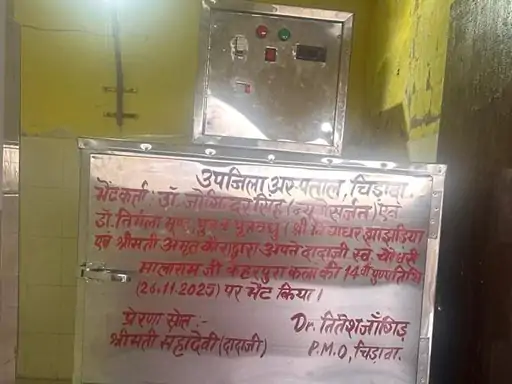 उपजिला अस्पताल, चिड़ावा.
भेंटकर्ता: डॉ. जोगिन्दर सिंह (न्यूरोसर्जन) एवं
डॉ. निर्मला सुपुत्र पुत्रवधु (श्री विद्याधर झाझड़िया
एवं श्रीमती अमृत कौर) द्वारा अपने दादाजी स्व. चौधरी
मालाराम जी केहरपुरा कला की 14 वी पुण्यतिथि
(26.11.2025) पर भेंट किया।
प्रेरणा स्रोत :-
श्रीमती सहादेवी (दादाजी)
Dr. नितेश जाँगिड़
P.M.O, चिड़ावा.